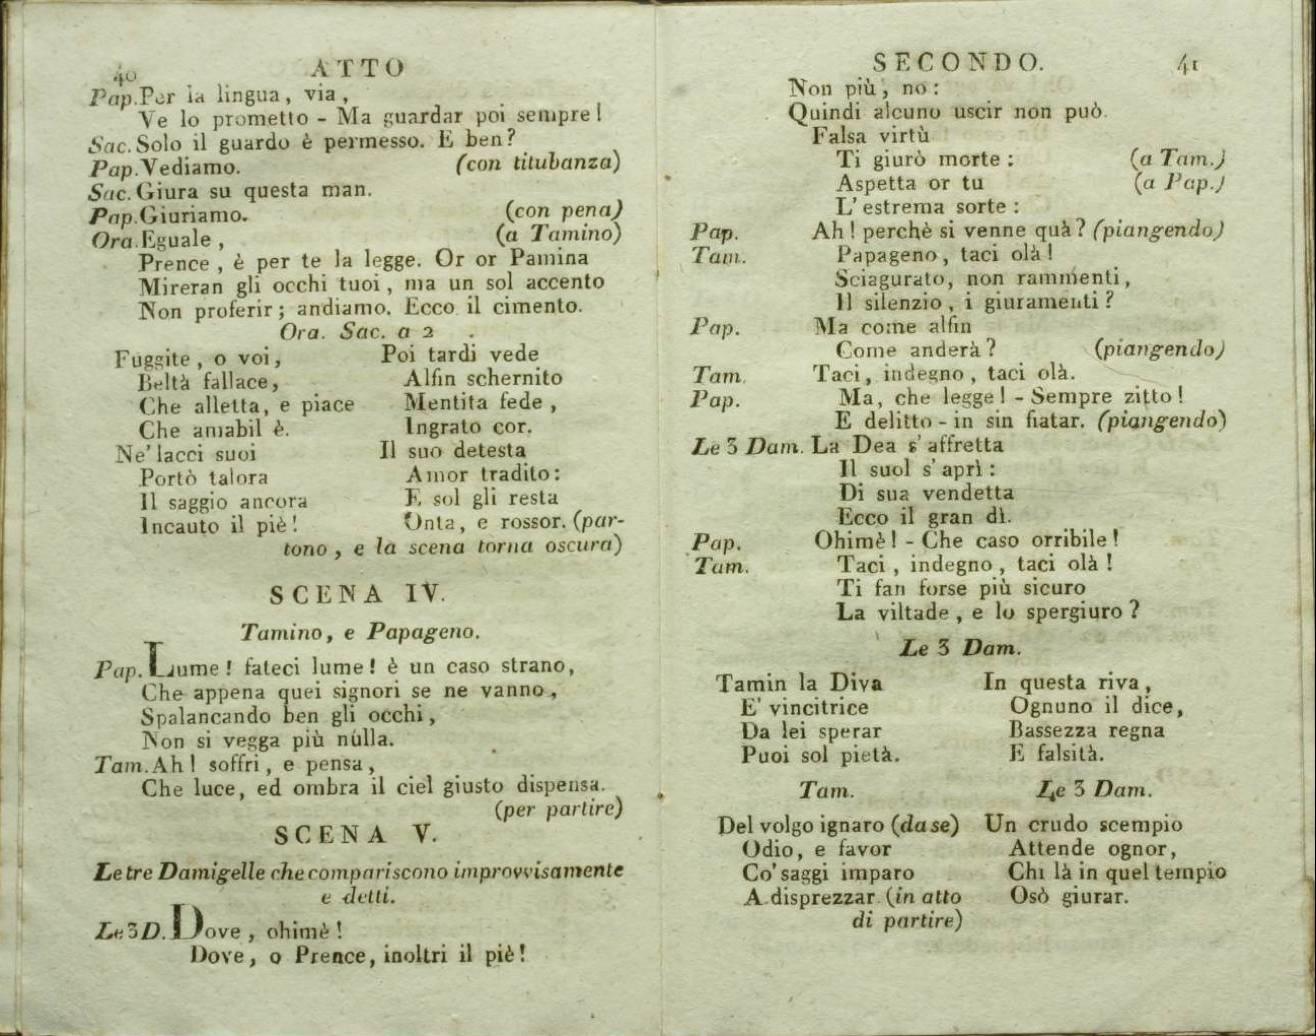 40 ATTO
Pap. Per la lingua, via,
Ve lo prometto - Ma guardar poi sempre!
Sac. Solo il guardo è permesso. E ben?
Pap. Vediamo. (con titubanza)
Sac. Giura su questa man.
Pap. Giuriamo. (con pena)
Ora. Eguale, (a Tamino)
Prence, è per te la legge. Or or Pamina
Mireran gli occhi tuoi, ma un sol accento
Non proferir; andiamo. Ecco il cimento.
Ora. Sac. a 2
Fuggite, o voi,
Beltà fallace,
Che alletta, e piace
Che amabil è.
Ne' lacci suoi
Portò talora
Il saggio ancora
Incauto il piè!
Poi tardi vede
Alfin schernito
Mentita fede,
Ingrato cor.
Il suo detesta
Amor tradito:
E sol gli resta
Onta, e rossor. (par-
tono, e la scena torna oscura)
SCENA IV.
Tamino, e Papageno.
Pap. Lume! fateci lume! è un caso strano,
Che appena quei signori se ne vanno,
Spalancando ben gli occhi,
Non si vegga più nulla.
Tam. Ah! soffri, e pensa,
Che luce, ed ombra il ciel giusto dispensa.
(per partire)
SCENA V.
Le tre Damigelle che compariscono improvvisamente
e detti.
Le 3 D. Dove, ohimè!
Dove, o Prence, inoltri il piè!
SECONDO. 41
Non più, no:
Quindi alcuno uscir non può.
Falsa virtù
Ti giurò morte: (a Tam.)
Aspetta or tu (a Pap.)
L'estrema sorte:
Pap. Ah! perchè si venne quà? (piangendo)
Tam. Papageno, taci olà!
Sciagurato, non rammenti,
Il silenzio, i giuramenti?
Pap. Ma come alfin
Come anderà? (piangendo)
Tam. Taci, indegno, taci olà.
Pap. Ma, che legge! - Sempre zitto!
E delitto - in sin fiatar. (piangendo)
Le 3 Dam. La Dea s'affretta
Il suol s'aprì:
Di sua vendetta
Ecco il gran dì.
Pap. Ohimè! - Che caso orribile!
Tam. Taci, indegno, taci olà!
Ti fan forse più sicuro
La viltade, e lo spergiuro?
Le 3 Dam.
Tamin la Diva
E' vincitrice
Da lei sperar
Puoi sol pietà.
In questa riva,
Ognuno il dice,
Bassezza regna
E falsità.
Tam.
Del volgo ignaro (da se)
Odio, e favor
Co' saggi imparo
A disprezzar (in atto
di partire)
Le 3 Dam.
Un crudo scempio
Attende ognor,
Chi là in quel tempio
Osò giurar.